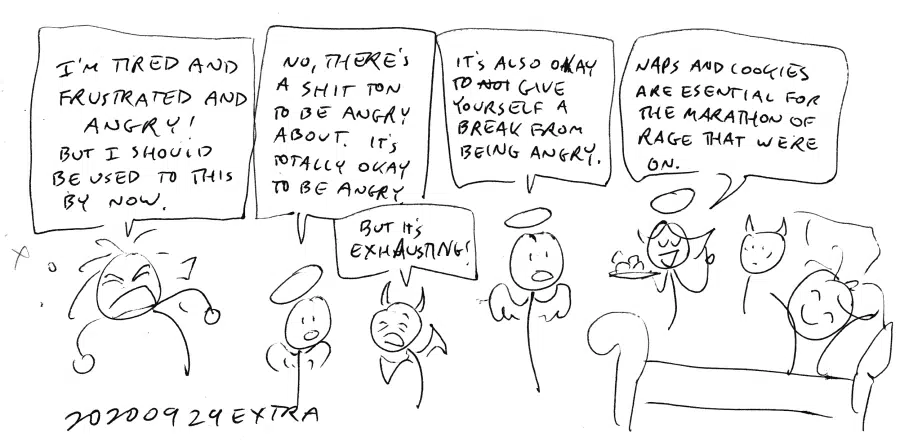 I'M TIRED AND
FRUSTRATED AND
ANGRY!
BUT I SHOULD
BE USED TO THIS
BY NOW.
NO, THERE'S
A SHIT TON
TO BE ANGRY
ABOUT. IT'S
TOTALLY OKAY
TO BE ANGRY
BUT IT'S
EXHAUSTING!
IT'S ALSO OKAY
TO NOT GIVE
YOURSELF A
BREAK FROM
BEING ANGRY.
NAPS AND COOKIES
ARE ESENTIAL FOR
THE MARATHON OF
RAGE THAT WERE
ON.
20200929EXTRA